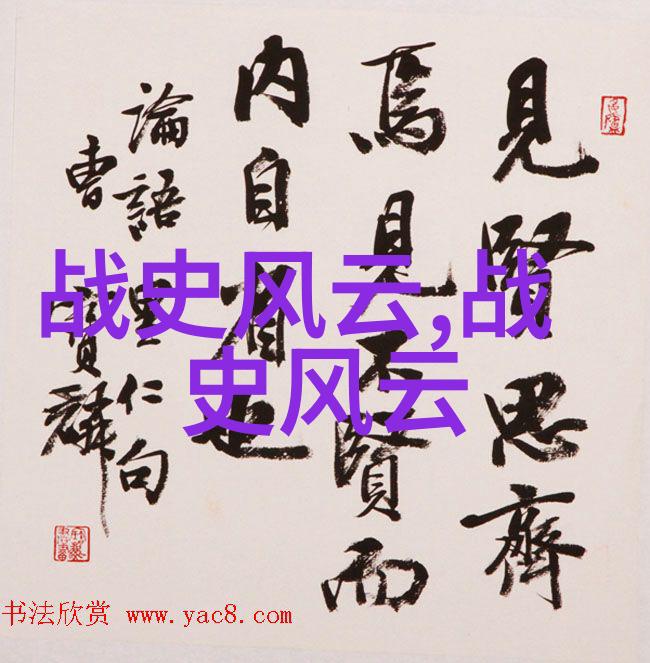 見賢思齊
焉見不賢而
内自省也
論語里仁句
曹寶麟
战史风云,战
史风云
书法欣赏 www.yac8.com